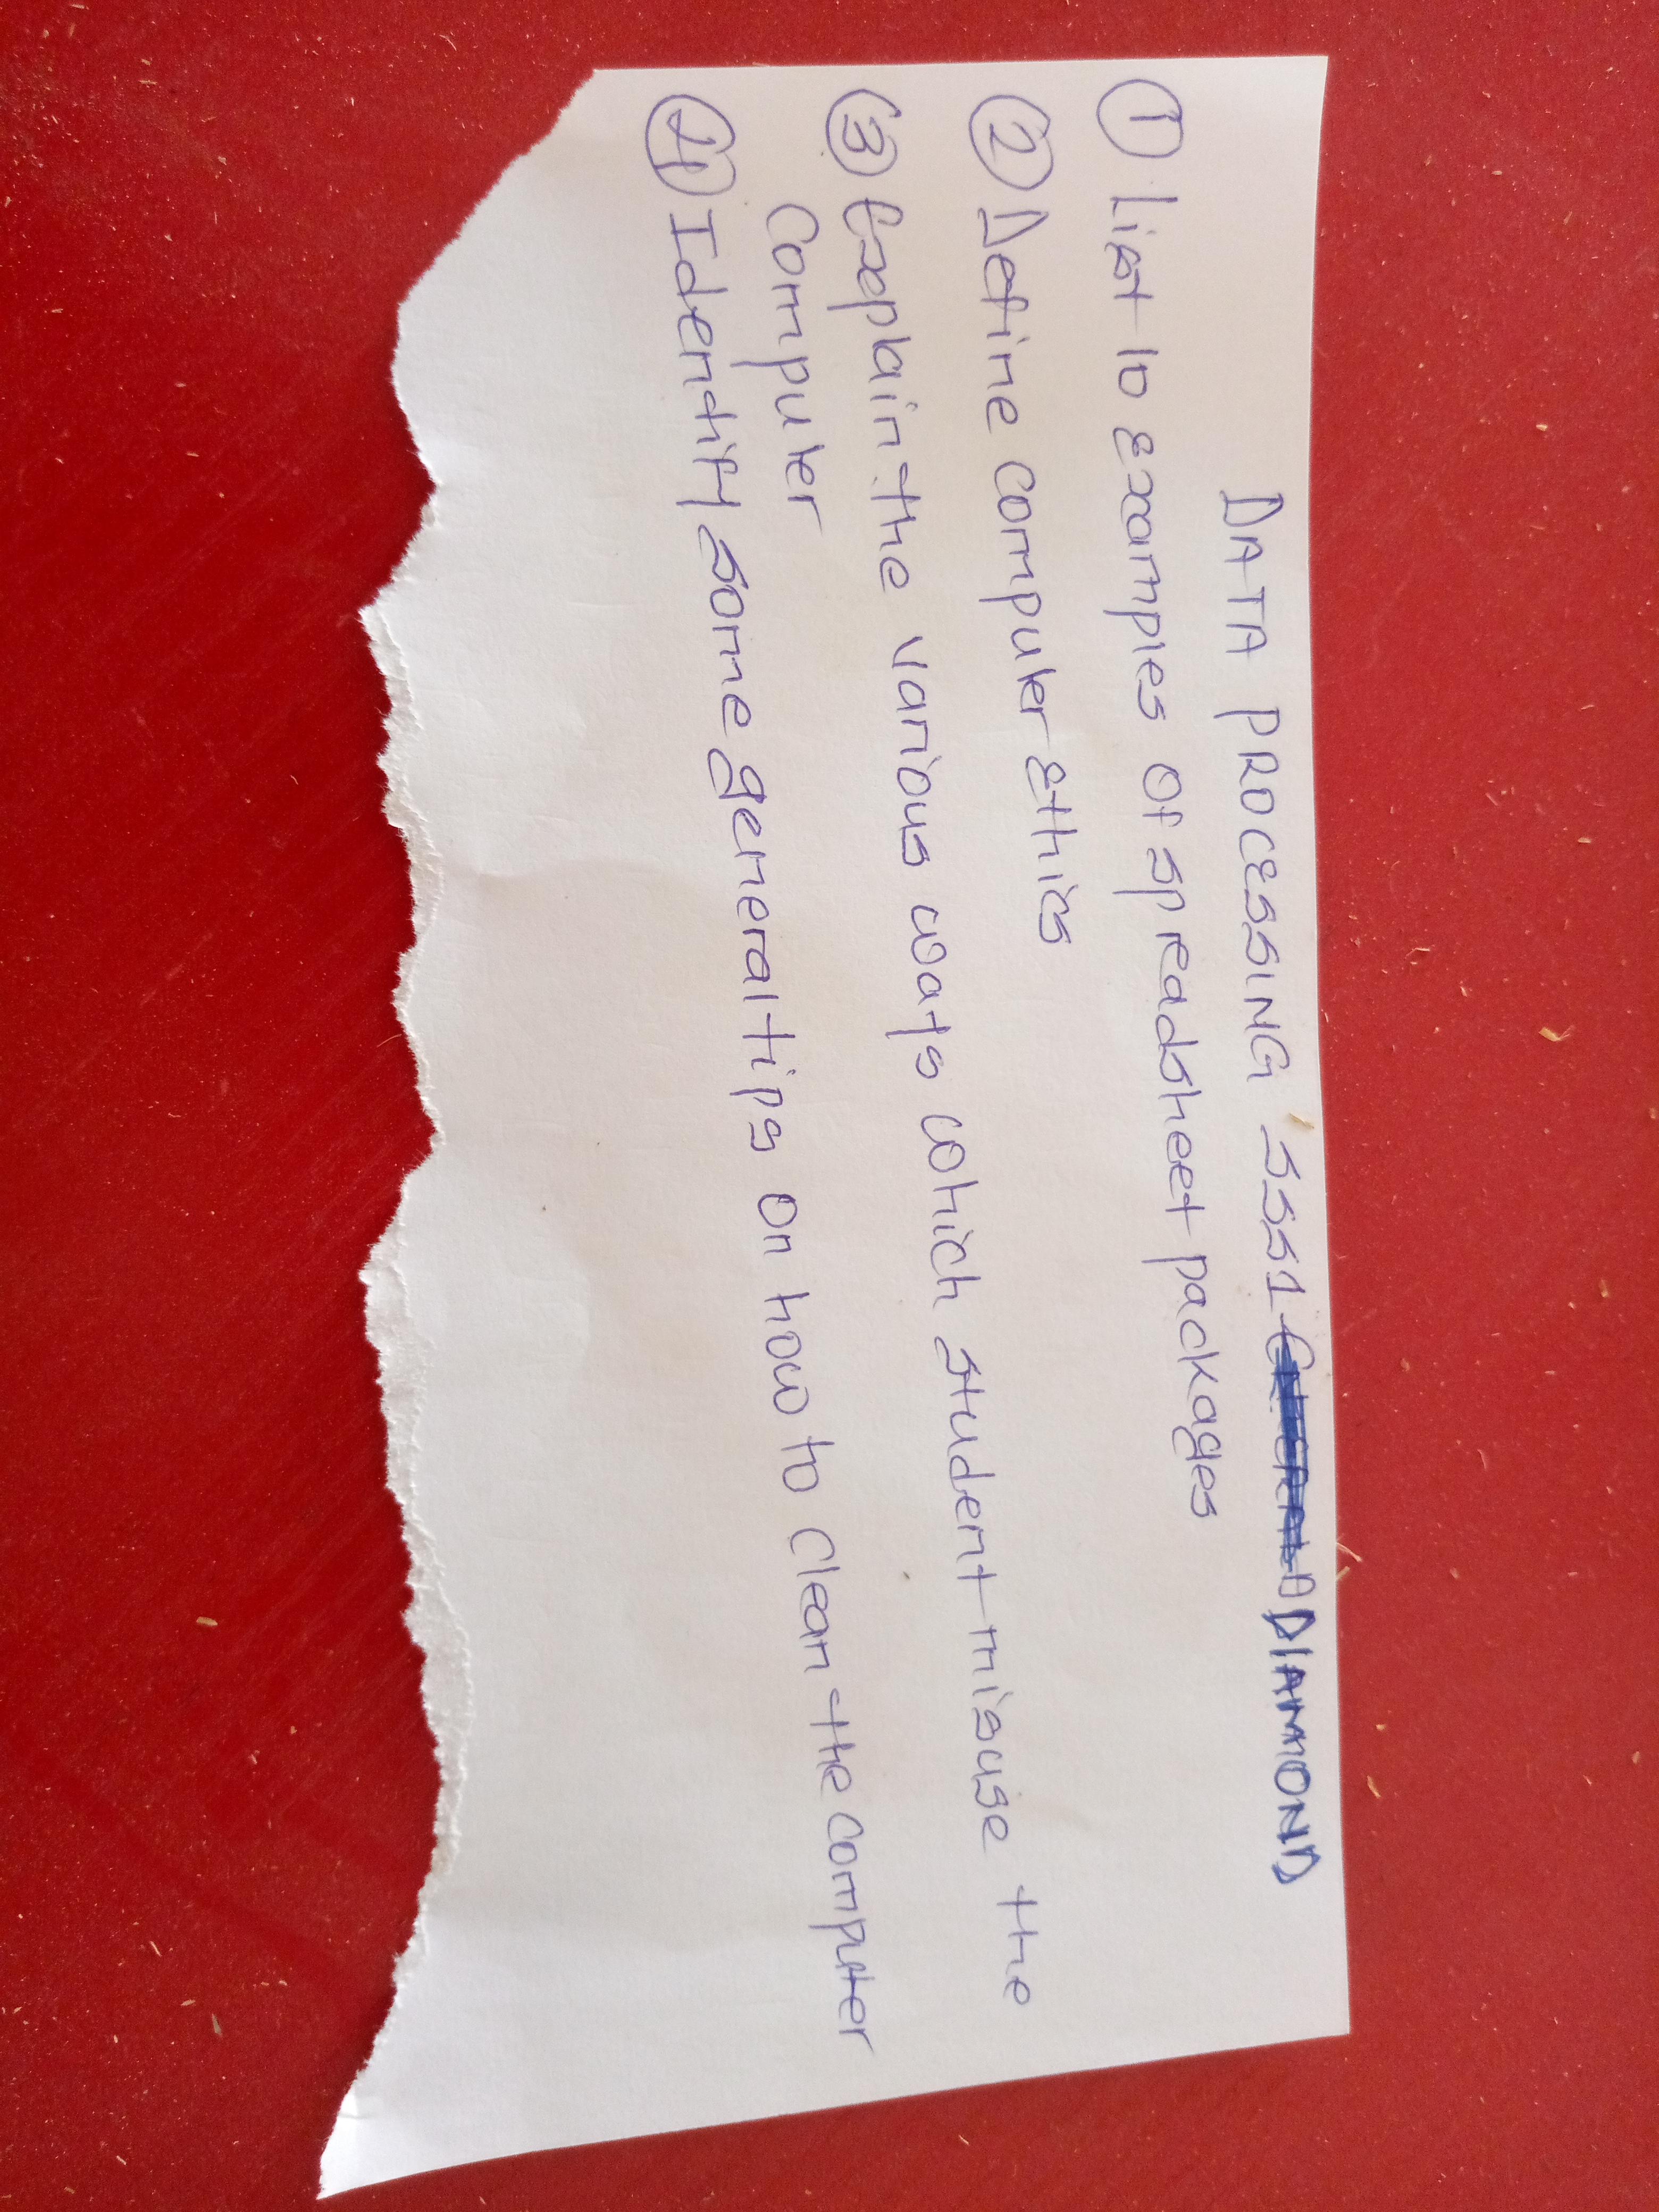 DATA PROCESSING SSS1 DIAMOND
① List 10 examples of spreadsheet packages
② Define computer ethics
③ Explain the various ways which student misuse the
computer
④ Identify some general tips on how to clean the computer